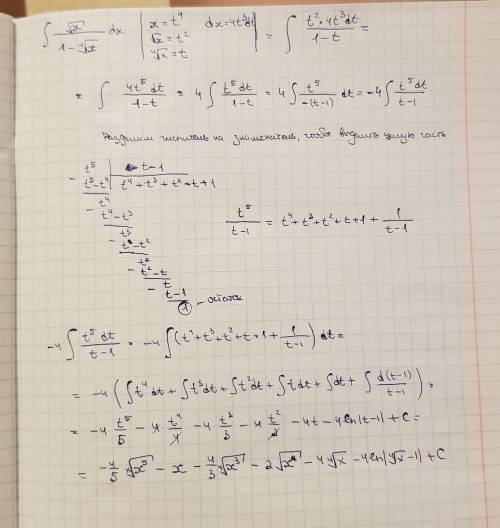 ∫ √x / (1 − ⁴√x) dx | x = t⁴ dx = 4t³dt √x = t² ⁴√x = t | = ∫ t² · 4t³dt / (1 − t) =
= ∫ 4t⁵ dt / (1 − t) = 4 ∫ t⁵ dt / (1 − t) = 4 ∫ t⁵ / −(t−1) dt = −4 ∫ t⁵ dt / (t − 1)
Разделим числитель на знаменатель, чтобы выделить целую часть
− t⁵ | t − 1
t⁵ − t⁴ | t⁴ + t³ + t² + t + 1
− t⁴
t⁴ − t³
− t³
t³ − t²
− t²
t² − t
− t
t − 1
1 – остаток
t⁵ / (t − 1) = t⁴ + t³ + t² + t + 1 + 1 / (t − 1)
−4 ∫ t⁵ dt / (t − 1) = −4 ∫ (t⁴ + t³ + t² + t + 1 + 1 / (t − 1)) dt =
= −4 (∫ t⁴ dt + ∫ t³ dt + ∫ t² dt + ∫ t dt + ∫ dt + ∫ d(t−1) / (t−1)) =
= −4 · t⁵/5 − 4 · t⁴/4 − 4 · t³/3 − 4 · t²/2 − 4t − 4 ln|t−1| + C =
= −4/5 ⁴√x⁵ − x − 4/3 ⁴√x³ − 2 √x − 4 ⁴√x − 4 ln|⁴√x − 1| + C